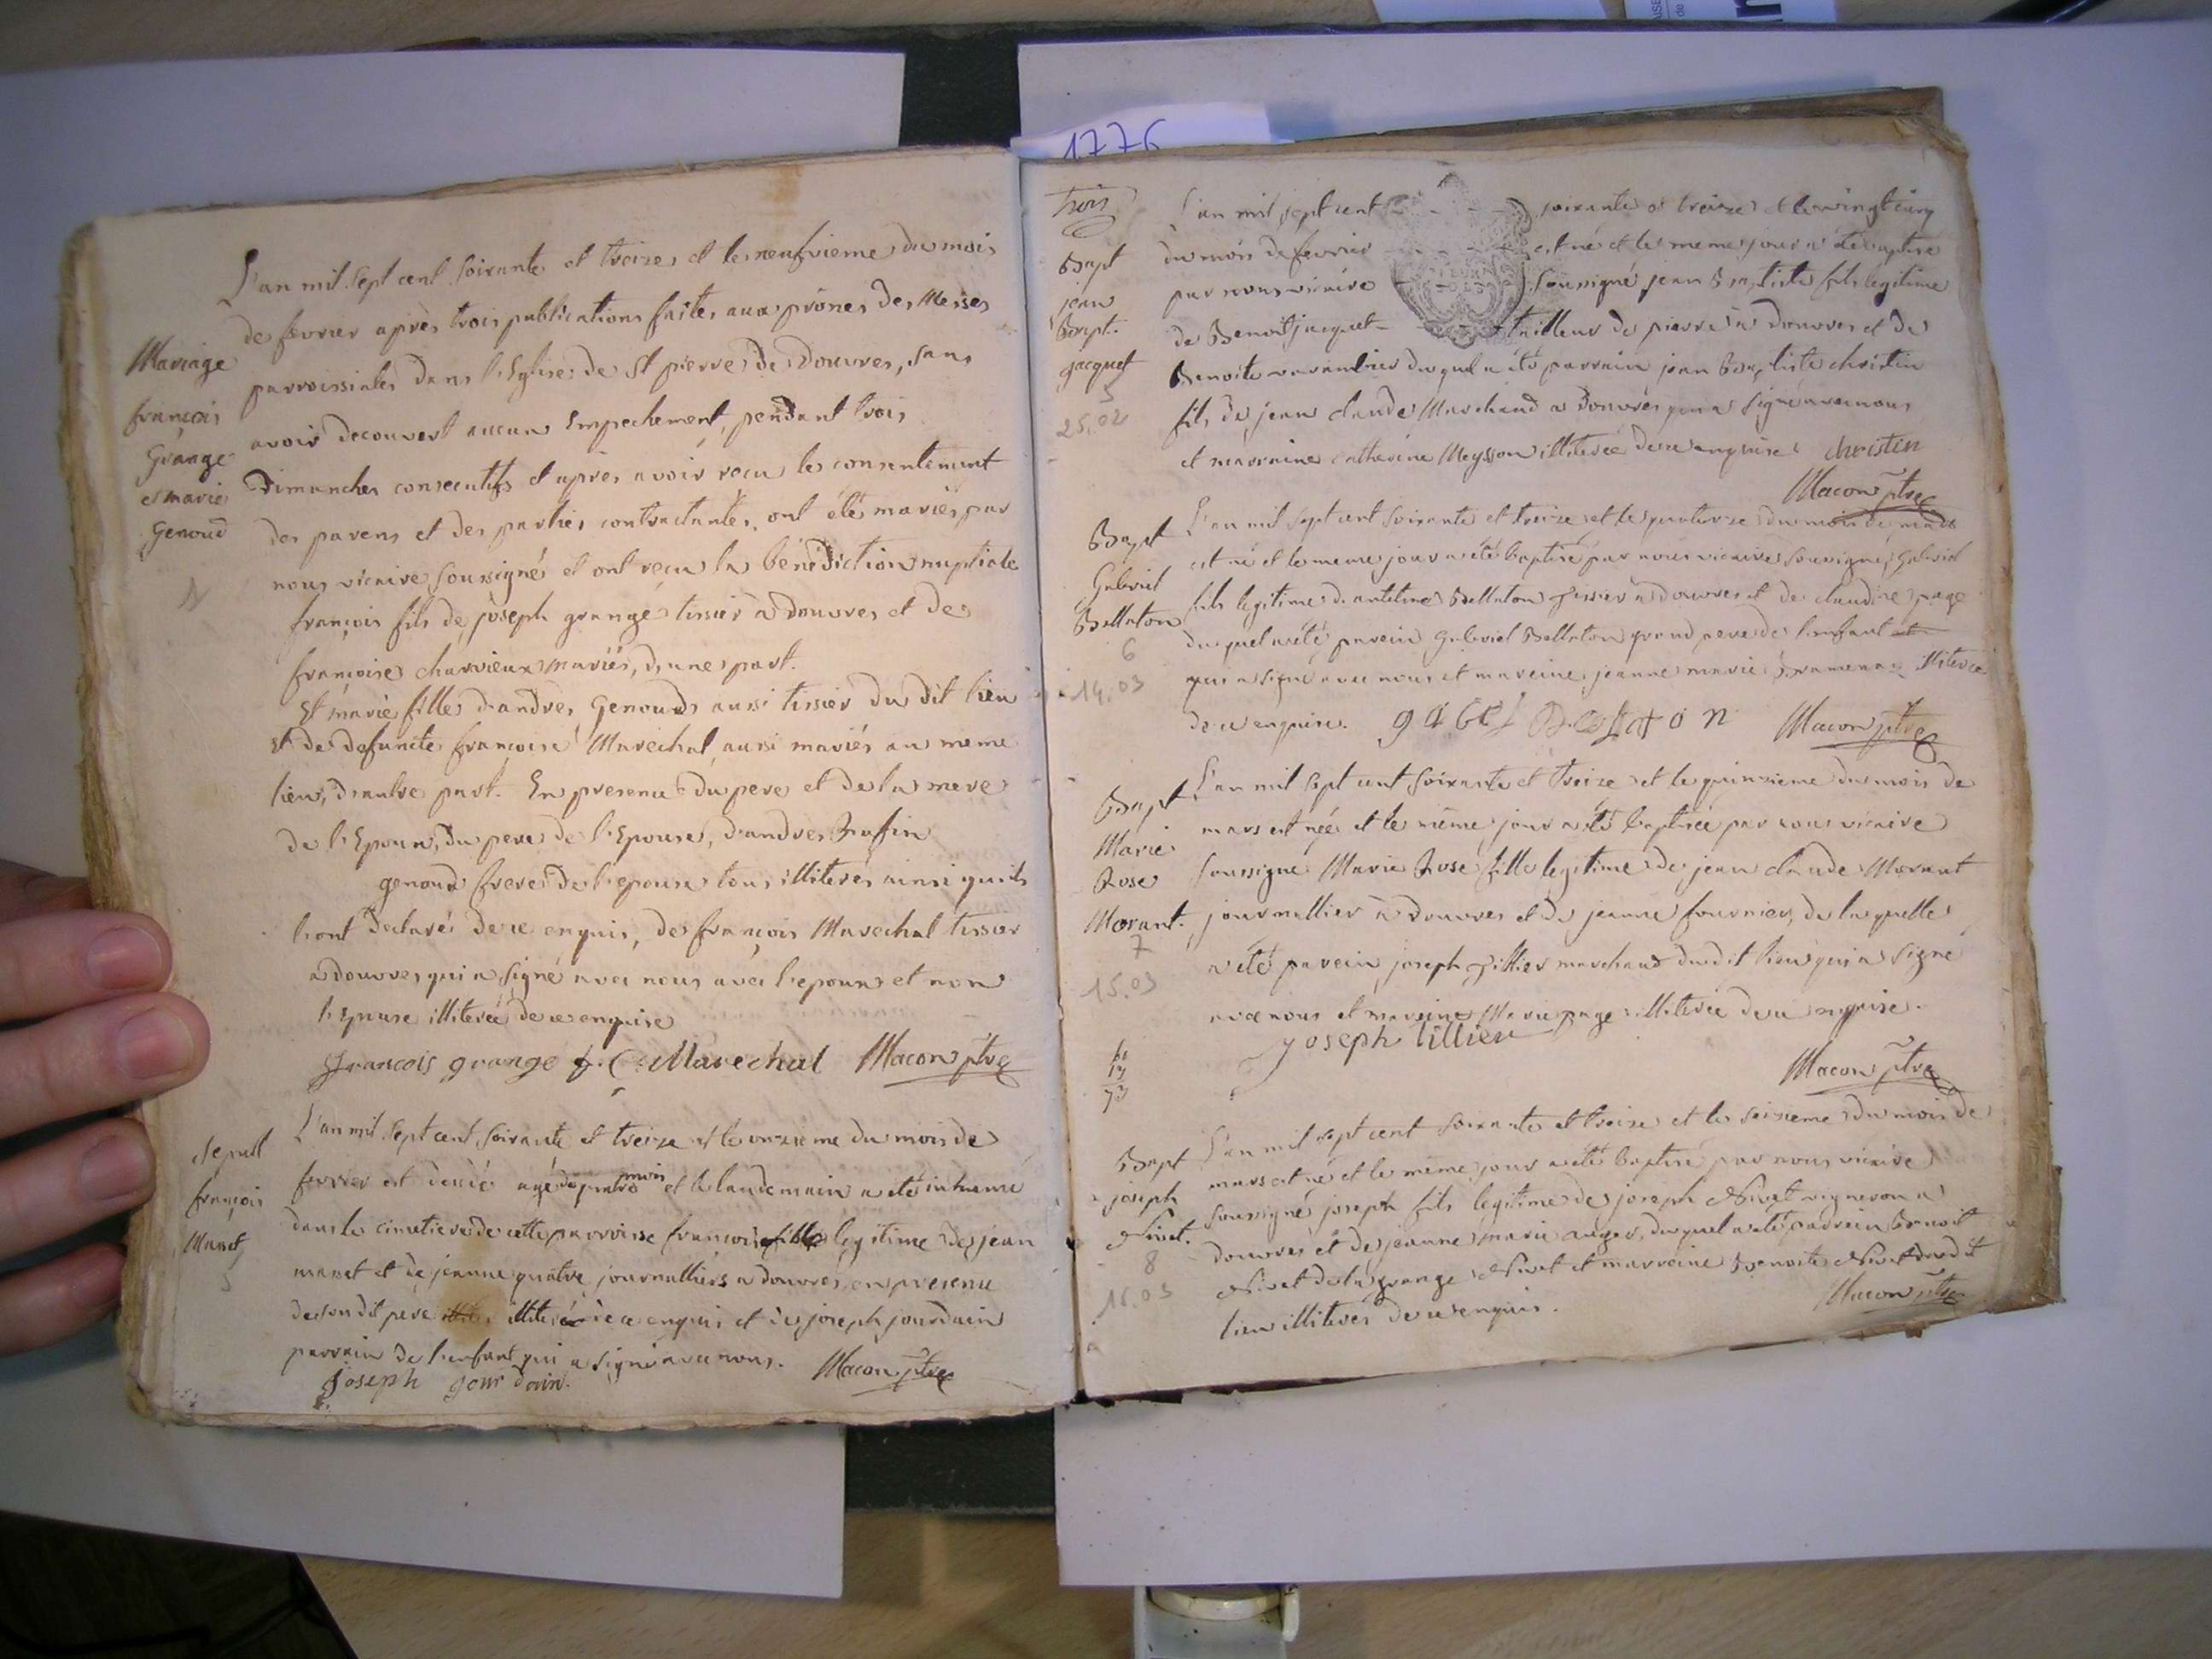 1776
L'an mil sept cent soixante et treize et le neufvieme du mois
de fevrier après trois publications faites aux prônes des Messes
parroissiales dans l'Eglise de St pierre de Douvres, sans
avoir decouvert aucun Empechement, pendant trois
Dimanches consecutifs et après avoir reçu le consentement
des parens et des parties contractantes, ont été mariés par
nous vicaire soussigné et ont reçu la bénédiction nuptiale
françois fils de joseph grange tissier à douvres et de
françoise charvieux mariés, d'une part.
Et marie fille d'andré Genoud aussi tissier du dit lieu
et de defuncte françoise Marechal aussi mariés au meme
lieu, d'autre part. En presence du pere et de la mere
de l'Epoux, du pere de l'Epouse, d'andré
genoud frere de l'epouse tous illiterés ainsi qu'ils
l'ont declaré de ce enquis, de françois Marechal tissier
a douvres qui a signé avec nous avec l'epoux et non
l'Epouse illiterée de ce enquise
Mariage
françois
Grange
et marie
Genoud
francois grange f. C. Marechal Macon ptre
L'an mil sept cent soixante et treize et le onzieme du mois de
fevrier est decedé agé de quatre mois et le landemain a eté inhumé
dans le cimetiere de cette parroisse françois fille legitime de jean
manet et de jeanne quatre journalliers a douvres, en presence
de son dit pere illiteré de ce enquis et de joseph jourdain
parrain de l'enfant qui a signé avec nous. Macon ptre
joseph jourdain
Sepult
françois
Manet
trois
L'an mil sept cent soixante et treize et le vingt cinq
du mois de fevrier est né et le meme jour a été baptisé
par nous vicaire soussigné jean Baptiste fils legitime
de Benoit jacquet tailleur de pierre a Douvres et de
Benoite varambier duquel a été parrain jean Baptiste christin
fils de jean claude Marchand a Douvres qui a signé avec nous
et marraine catherine Meysson illiterée de ce enquise christin
Macon ptre
Bapt
jean
Bapt.
jacquet
5
25.02
L'an mil sept cent soixante et treize et le quatorze du mois de mars
est né et le meme jour a été baptisé par nous vicaire soussigné, Gabriel
fils legitime d'antelme Bellaton tissier a douvres et de claudine page
duquel a été parein Gabriel Bellaton grand pere de l'enfant
qui a signé avec nous et mareine jeanne marie illiterée
de ce enquise. Macon ptre
Bapt
Gabriel
Bellaton
6
14.03
L'an mil sept cent soixante et treize et le quinzieme du mois de
mars est née et le même jour a été baptisée par nous vicaire
soussigné Marie Rose fille legitime de jean claude Morant
journallier a douvres et de jeanne fournier, de laquelle
a été parein joseph tillier marchand du dit lieu qui a signé
avec nous et mareine Marie page illiterée de ce enquise.
joseph tillier
Macon ptre
Bapt
Marie
Rose
Morant.
7
15.03
L'an mil sept cent soixante et treize et le seizieme du mois de
mars est né et le même jour a été baptisé par nous vicaire
soussigné joseph fils legitime de joseph Nivet vigneron a
douvres et de jeanne marie auger, duquel a été parrein Benoit
Nivet de la grange Nivet et marreine Benoite Nivet du dit
lieu illiterés de ce enquis. Macon ptre
Bapt
joseph
Nivet.
8
16.03